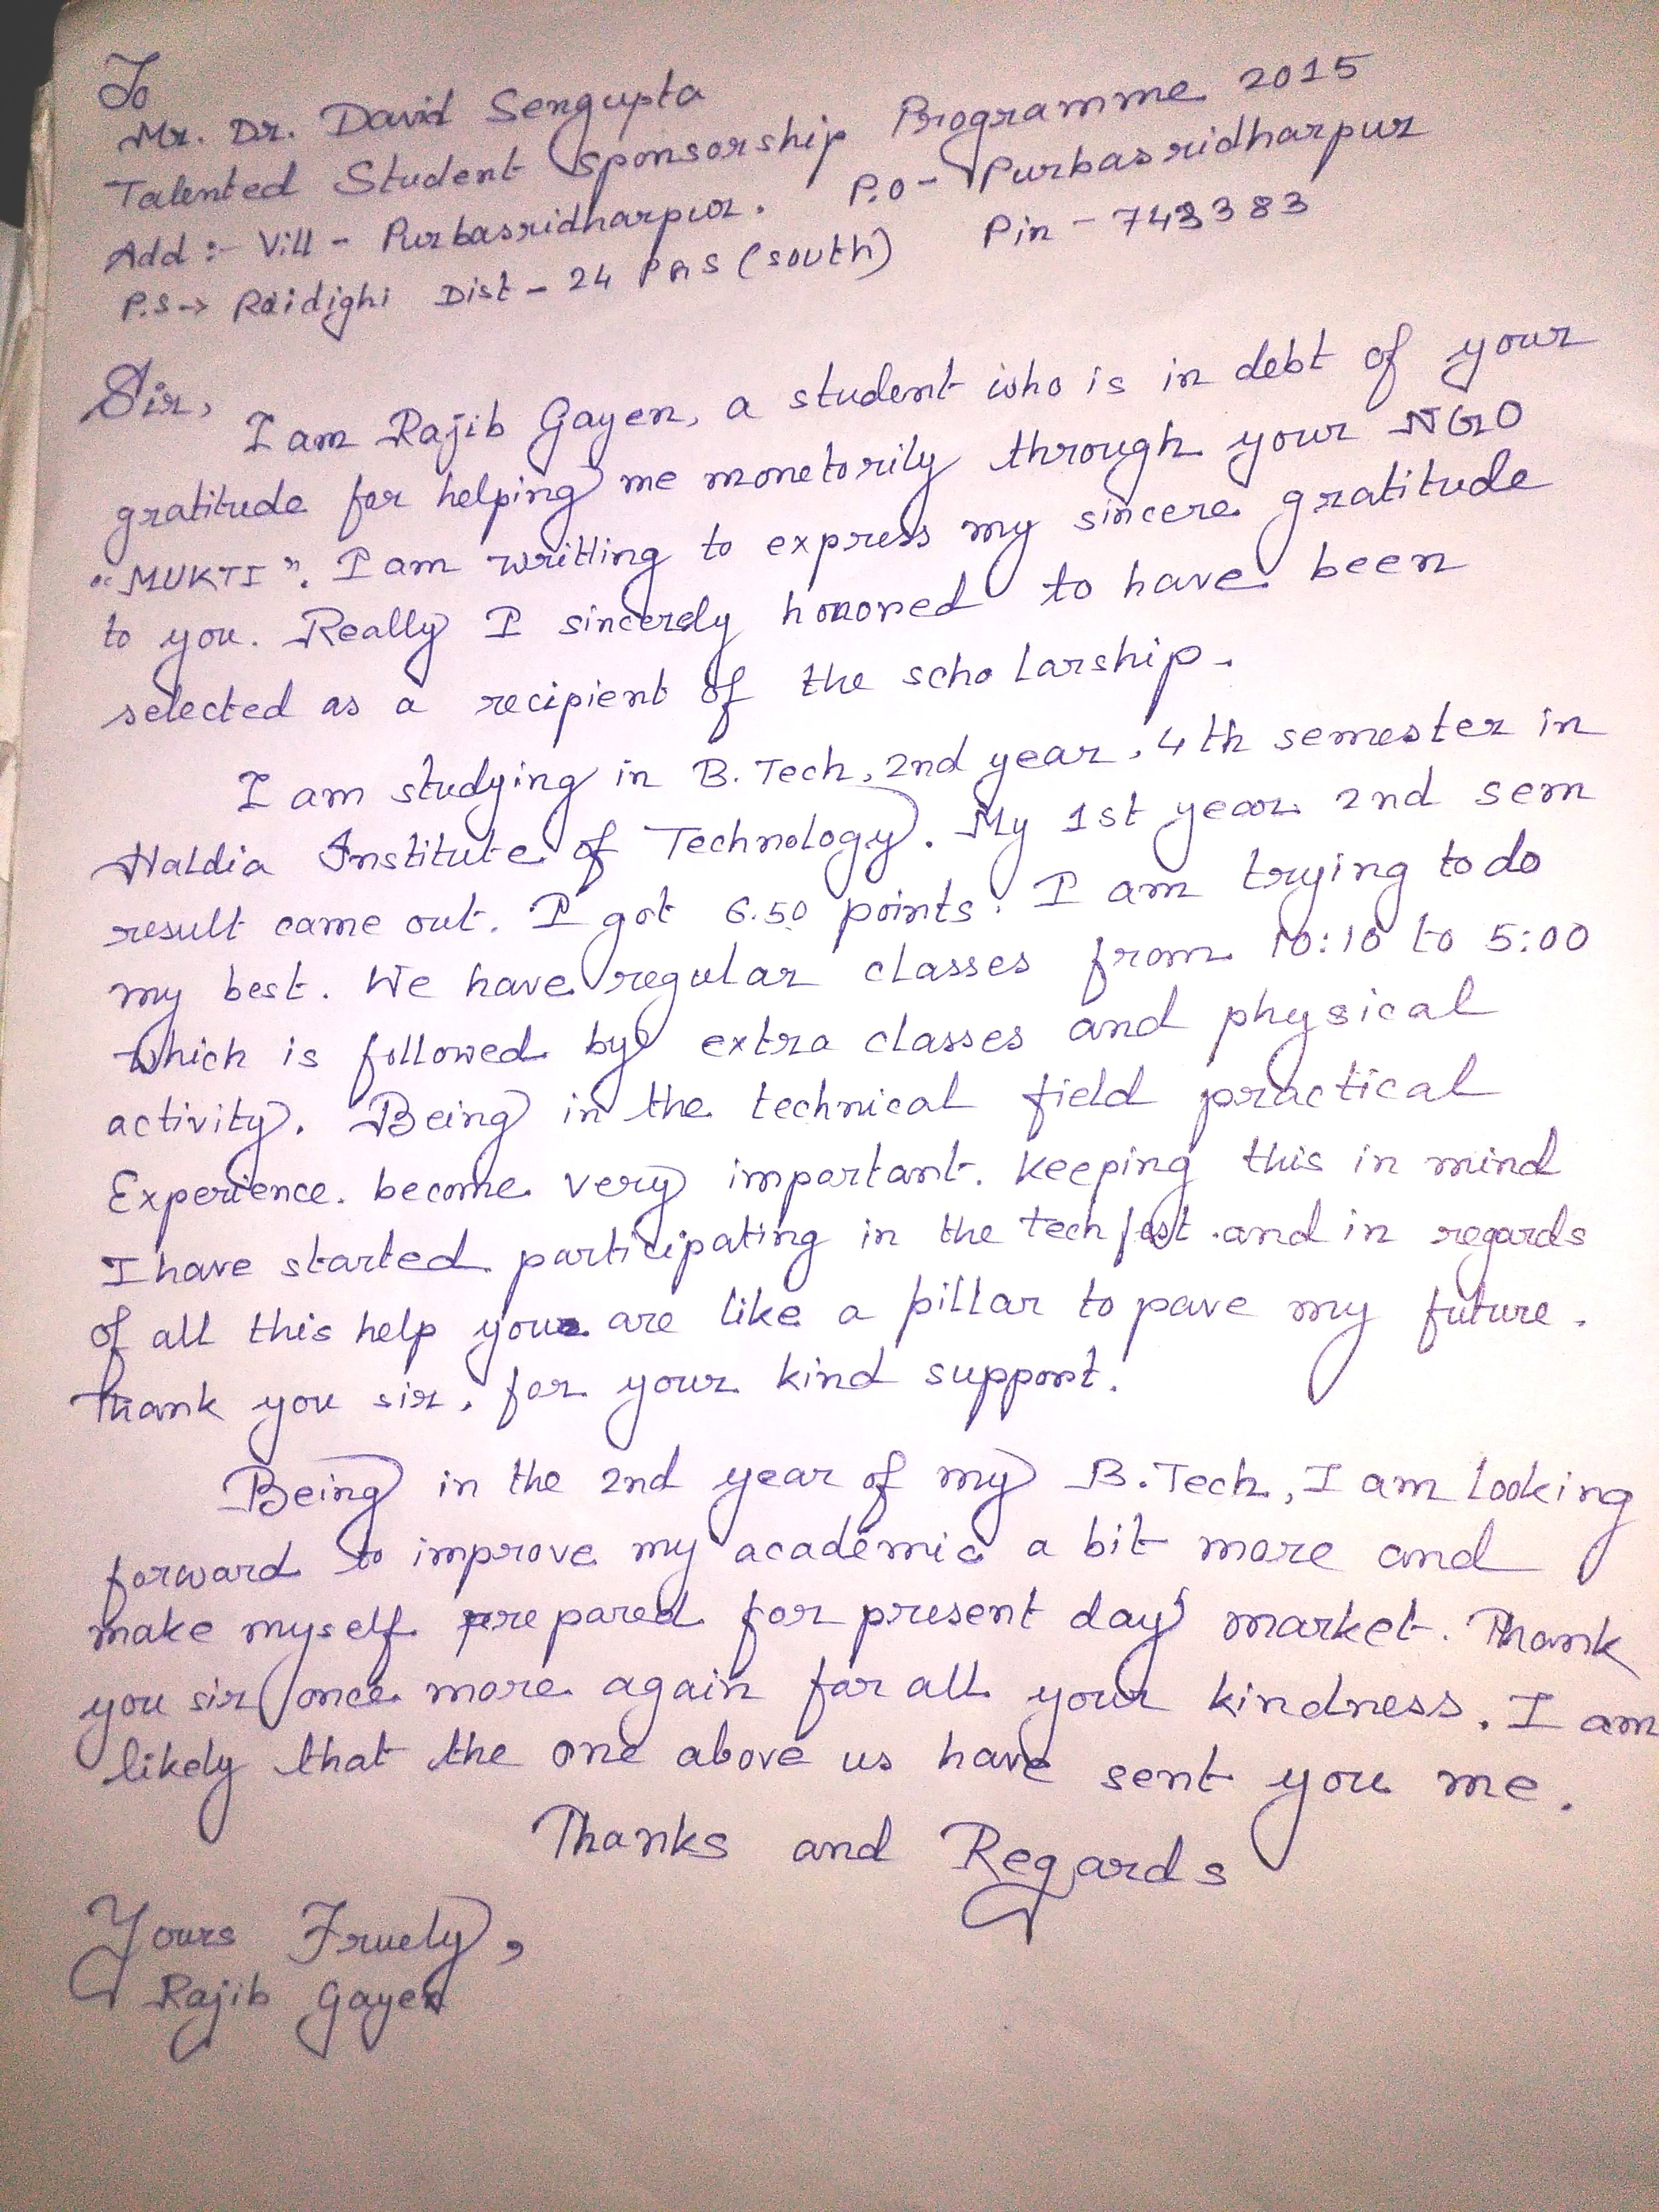 To
Mr. Dr. David Sengupta
Talented Student Sponsorship Programme 2015
Add :- Vill - Purbasridharpur. P.O - Purbasridharpur
P.S → Raidighi Dist - 24 PAS (South) Pin - 743383
Sir,
I am Rajib Gayen, a student who is in debt of your
gratitude for helping me monetorily through your NGO
"MUKTI". I am writting to express my sincere gratitude
to you. Really I sincerely honored to have been
selected as a recipient of the scholarship.
I am studying in B. Tech, 2nd year, 4th semester in
Haldia Institute of Technology. My 1st year 2nd sem
result came out. I got 6.50 points. I am trying to do
my best. We have regular classes from 10:10 to 5:00
which is followed by extra classes and physical
activity. Being in the technical field practical
Experience. become very important. keeping this in mind
I have started participating in the tech fest .and in regards
of all this help you are like a pillar to pave my future.
thank you sir, for your kind support.
Being in the 2nd year of my B. Tech, I am looking
forward to improve my academic a bit more and
make myself prepared for present day market. Thank
you sir once more again for all your kindness. I am
likely that the one above us have sent you me.
Thanks and Regards
Yours Truely,
Rajib Gayen